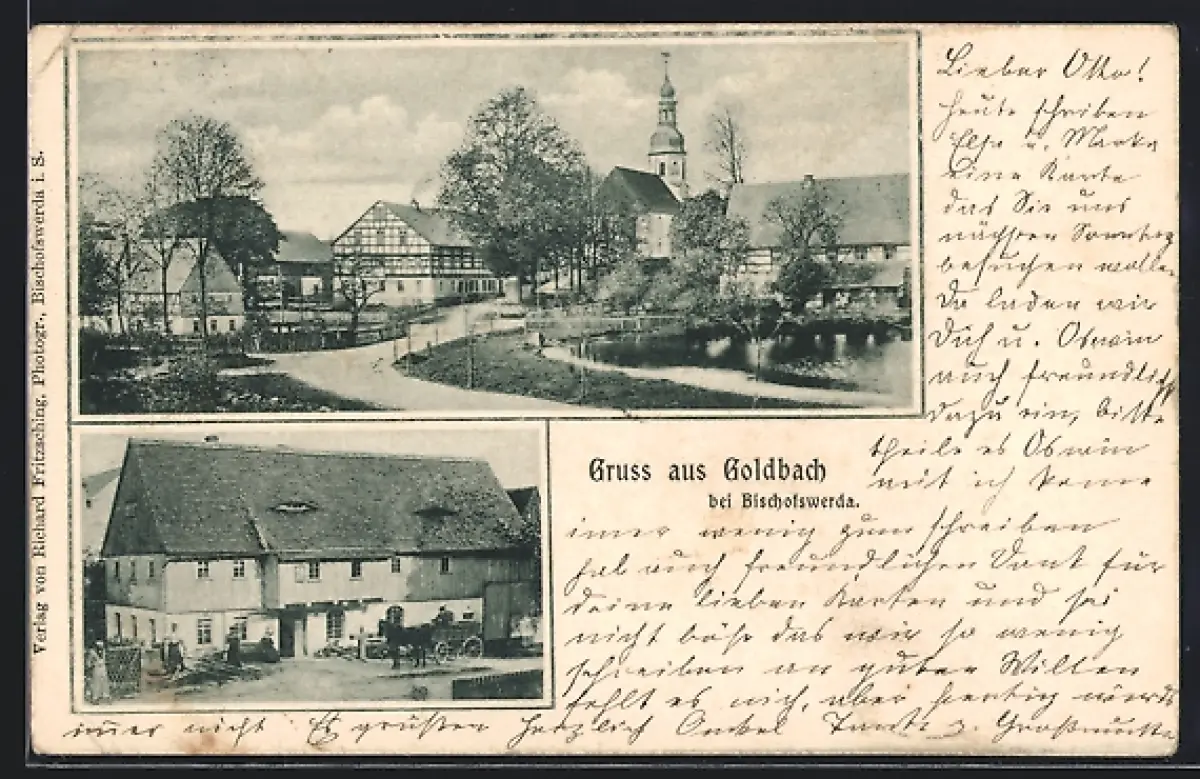 Verlag von Richard Fritzsching, Photogr., Bischofswerda i. S.
Gruss aus Goldbach
bei Bischofswerda.
Lieber Otto!
Heute schriben
Else u. Marta
eine Karte
das Sie uns
nächsten Sonntag
besuchen wollen
Da laden wir
Dich u. Oswin
auch freundlich
dazu ein, bitte
theile es Oswin
mit ich komme
imer wenig zum schreiben
hab auch freundlichen Dank für
deine lieben Karten und sei
nicht böse das wir so wenig
schreiben an guten Willen
fehlt es nich, aber fertig wirds
imer nicht Es grüßen herzlich Onkel Tante u. Großmutter